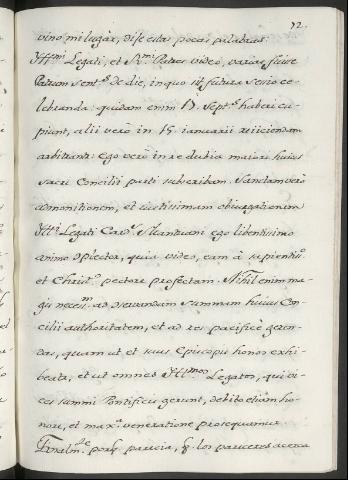 72.
vino mi lugàr, dise estas pocas palabras.
Yll.mi Legati, et R.mi Patres video, varias fuisse
Patrum sent.s de die, in quo sit futura sessio ce-
lebranda: quidam enim 17. Sept.s haberi cu-
piunt, alii verò in 15. ianuarii reiiciendam
arbitrantr: ego verò in re dubia maiori huius
sacri Concilii parti subscribam. Sanctam verò
admonitionem, et iustissimam obiurgationem
Yll.mi Legati Car.s Mantuani ego libentissimo
animo amplector, quia video, eam à sapientiss.o
et Christ.o pectore profectam. Nihil enim ma-
gis necess.m ad servandam summam huius Con-
cilii authoritatem, et ad res pacificè geren-
das, quam ut et suus Episcopis honor exhi-
beatr, et ut omnes Yll.mos Legatos, qui vi-
ces summi Pontificis gerunt, debito etiam ho-
nore, et max.a veneratione prosequamur.
Finalm.te porq. parecia, q. los pareceres acerca